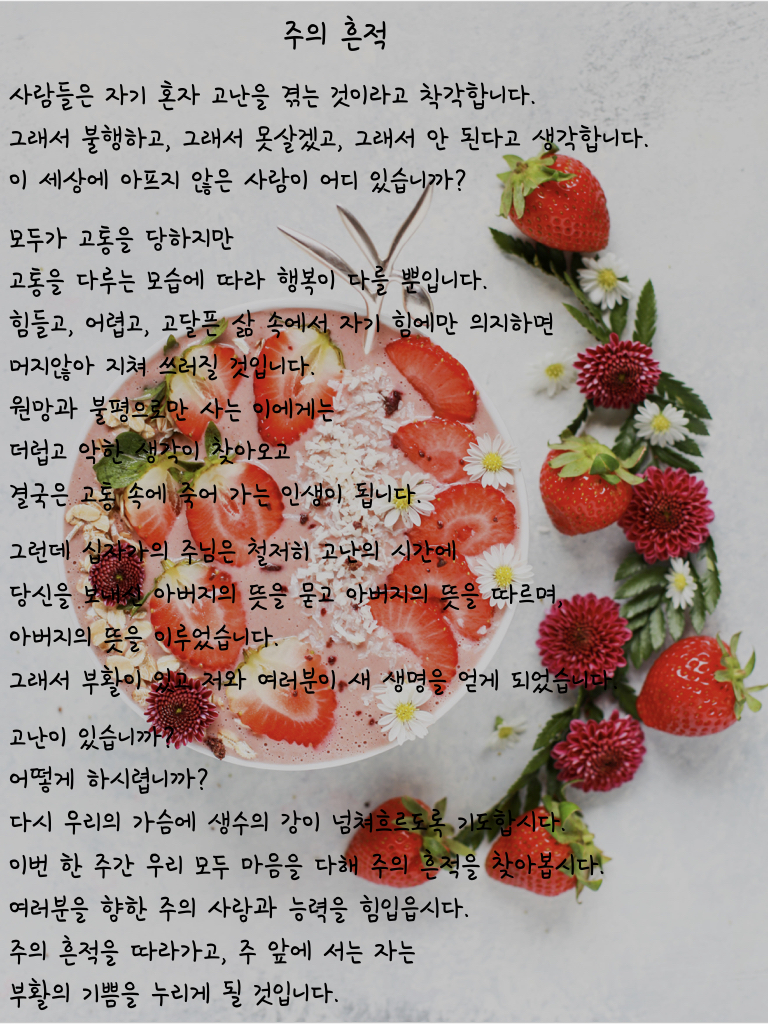 주의 흔적
사람들은 자기 혼자 고난을 겪는 것이라고 착각합니다.
그래서 불행하고, 그래서 못살겠고, 그래서 안 된다고 생각합니다.
이 세상에 아프지 않은 사람이 어디 있습니까?
모두가 고통을 당하지만
고통을 다루는 모습에 따라 행복이 다를 뿐입니다.
힘들고, 어렵고, 고달픈 삶 속에서 자기 힘에만 의지하면
머지않아 지쳐 쓰러질 것입니다.
원망과 불평으로만 사는 이에게는
더럽고 악한 생각이 찾아오고
결국은 고통 속에 죽어 가는 인생이 됩니다.
그런데 십자가의 주님은 철저히 고난의 시간에
당신을 보내신 아버지의 뜻을 묻고 아버지의 뜻을 따르며,
아버지의 뜻을 이루었습니다.
그래서 부활이 있고 저와 여러분이 새 생명을 얻게 되었습니다.
고난이 있습니까?
어떻게 하시렵니까?
다시 우리의 가슴에 생수의 강이 넘쳐흐르도록 기도합시다.
이번 한 주간 우리 모두 마음을 다해 주의 흔적을 찾아봅시다.
여러분을 향한 주의 사랑과 능력을 힘입읍시다.
주의 흔적을 따라가고, 주 앞에 서는 자는
부활의 기쁨을 누리게 될 것입니다.